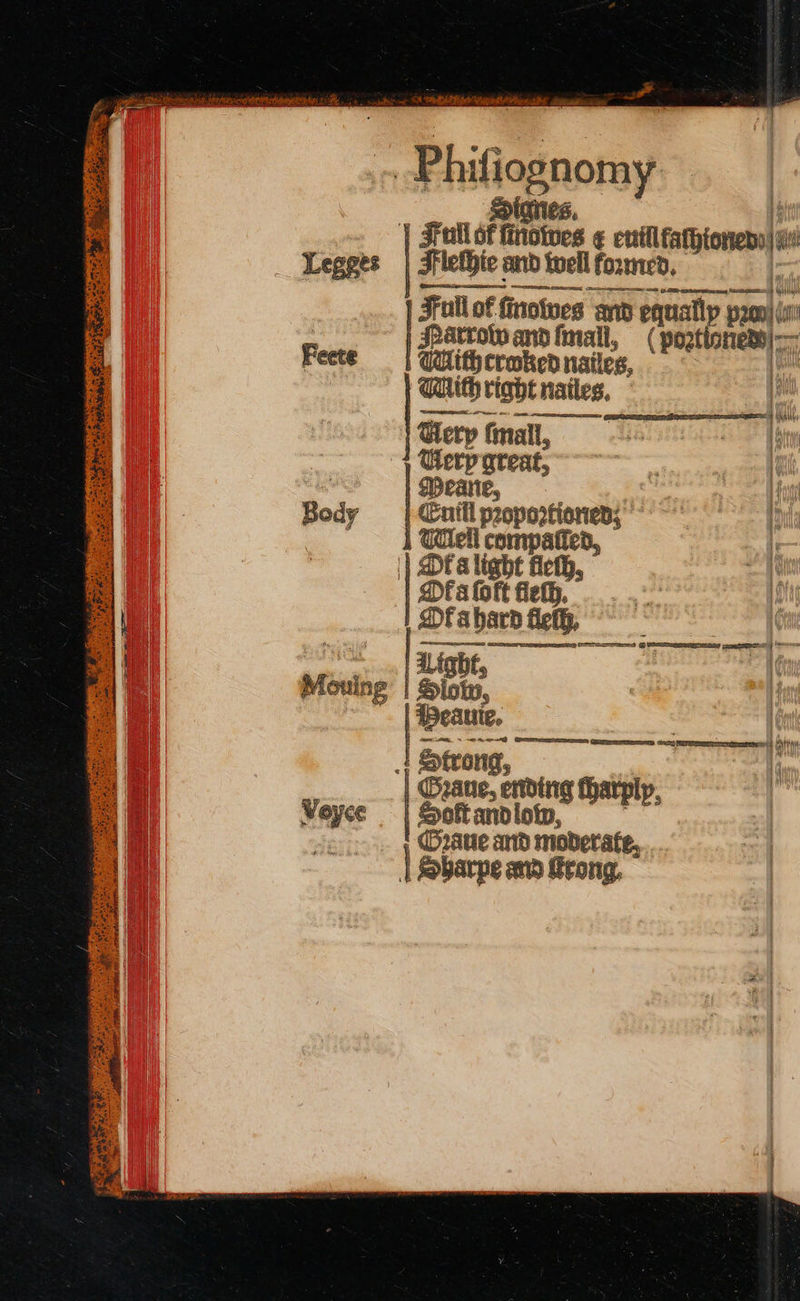 Phiſiognomy
Signes.
Full of ſinowes & euill faſhioned.
Legges Fleſhie and well formed.
Full of ſinowes and equally pro-
Narrow and ſmall, (portioned
Feete With crooked nailes,
With right nailes.
Very ſmall,
Very great,
Meane,
Body Euill proportioned;
Well compaſſed,
Of a light fleſh,
Of a ſoft fleſh.
Of a hard fleſh,
Light,
Mouing Slow,
Heauie.
Strong,
Graue, ending ſharply,
Voyce Soft and low,
Graue and moderate,
Sharpe and ſtrong.